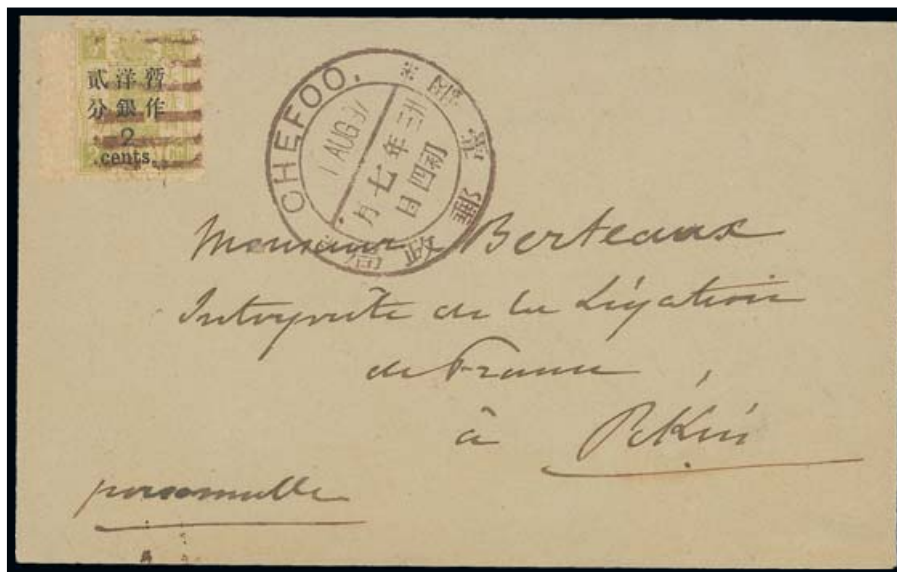 暫作
洋銀
貳分
2
cents.
CHEFOO.
煙臺郵政局
1 AUG 97
三年七月
初四日
Monsieur Berteaux
Interprète de la Légation
de France
à Pékin
personnelle